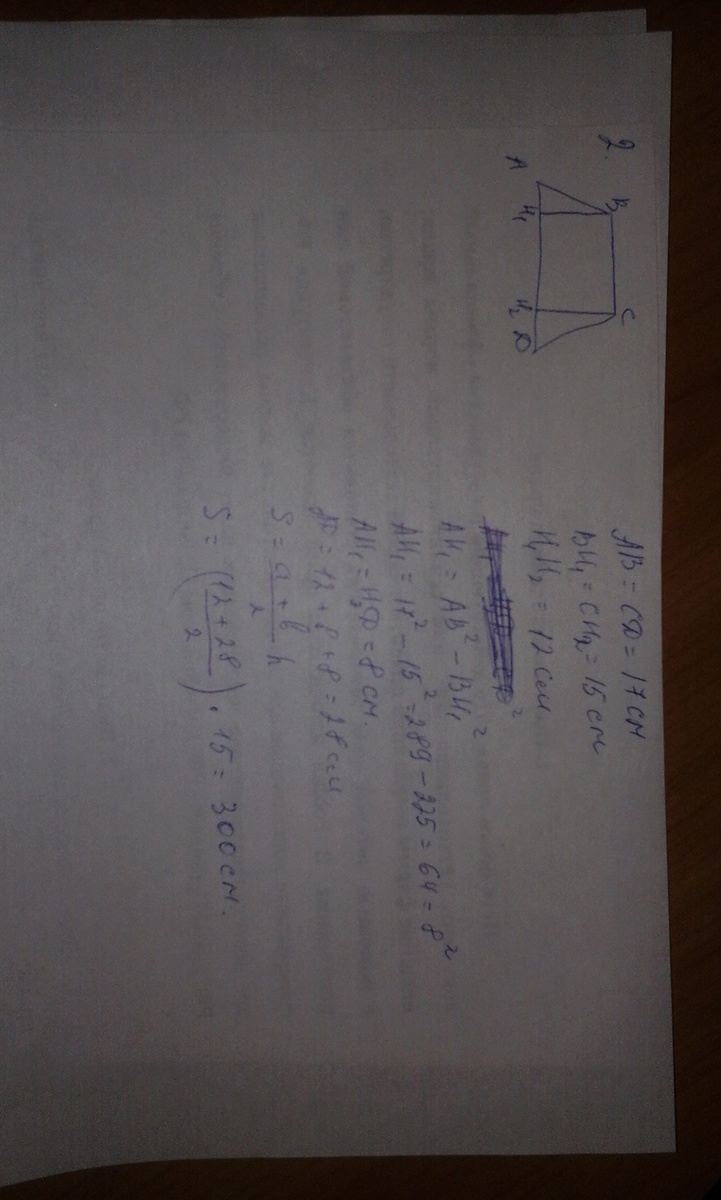 2.
B C
A H₁ H₂ D
AB = CD = 17 см
BH₁ = CH₂ = 15 см
H₁H₂ = 12 см.
AH₁ = AB² - BH₁²
AH₁ = 17² - 15² = 289 - 225 = 64 = 8²
AH₁ = H₂D = 8 см.
AD = 12 + 8 + 8 = 28 см
S = \frac{a + b}{2} h
S = (\frac{12 + 28}{2}) · 15 = 300 см.